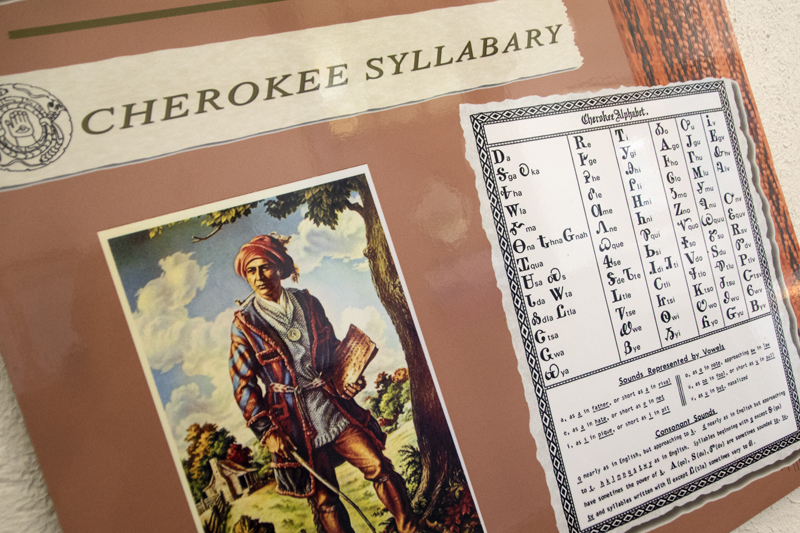 CHEROKEE SYLLABARY
Cherokee Alphabet.
Ꭰa Ꭱe Ꭲi Ꭳo Ꭴu Ꭵv
Ꭶga Ꭷka Ꭸge Ꭹgi Ꭺgo Ꭻgu Ꭼgv
Ꭽha Ꭾhe Ꭿhi Ꮀho Ꮁhu Ꮂhv
Ꮃla Ꮄle Ꮅli Ꮆlo Ꮇlu Ꮈlv
Ꮉma Ꮊme Ꮋmi Ꮌmo Ꮍmu
Ꮎna Ꮏhna Ꮐnah Ꮑne Ꮒni Ꮓno Ꮔnu Ꮕnv
Ꮖqua Ꮗque Ꮘqui Ꮙquo Ꮚquu Ꮛquv
Ꮜsa Ꮝs Ꮞse Ꮟsi Ꮠso Ꮡsu Ꮢsv
Ꮣda Ꮤta Ꮥde Ꮦte Ꮧdi Ꮨti Ꮩdo Ꮪdu Ꮫdv
Ꮬdla Ꮭtla Ꮮtle Ꮯtli Ꮰtlo Ꮱtlu Ꮲtlv
Ꮳtsa Ꮴtse Ꮵtsi Ꮶtso Ꮷtsu Ꮸtsv
Ꮹwa Ꮺwe Ꮻwi Ꮼwo Ꮽwu Ꮾwv
Ꮿya Ᏸye Ᏹyi Ᏺyo Ᏻyu Ᏼyv
Sounds Represented by Vowels
a, as a in father, or short as a in rival
e, as a in hate, or short as e in met
i, as i in pique, or short as i in pit
o, as o in note, approaching aw in law
u, as oo in fool, or short as u in pull
v, as u in but, nasalized
Consonant Sounds
g nearly as in English, but approaching to k. d nearly as in English but approaching
to t. h k l m n q s t w y as in English. Syllables beginning with g except Ꭶ(ga)
have sometimes the power of k. Ꭺ(go), Ꮪ(du), Ꮫ(dv) are sometimes sounded to, tu,
tv and syllables written with tl except Ꮭ(tla) sometimes vary to dl.